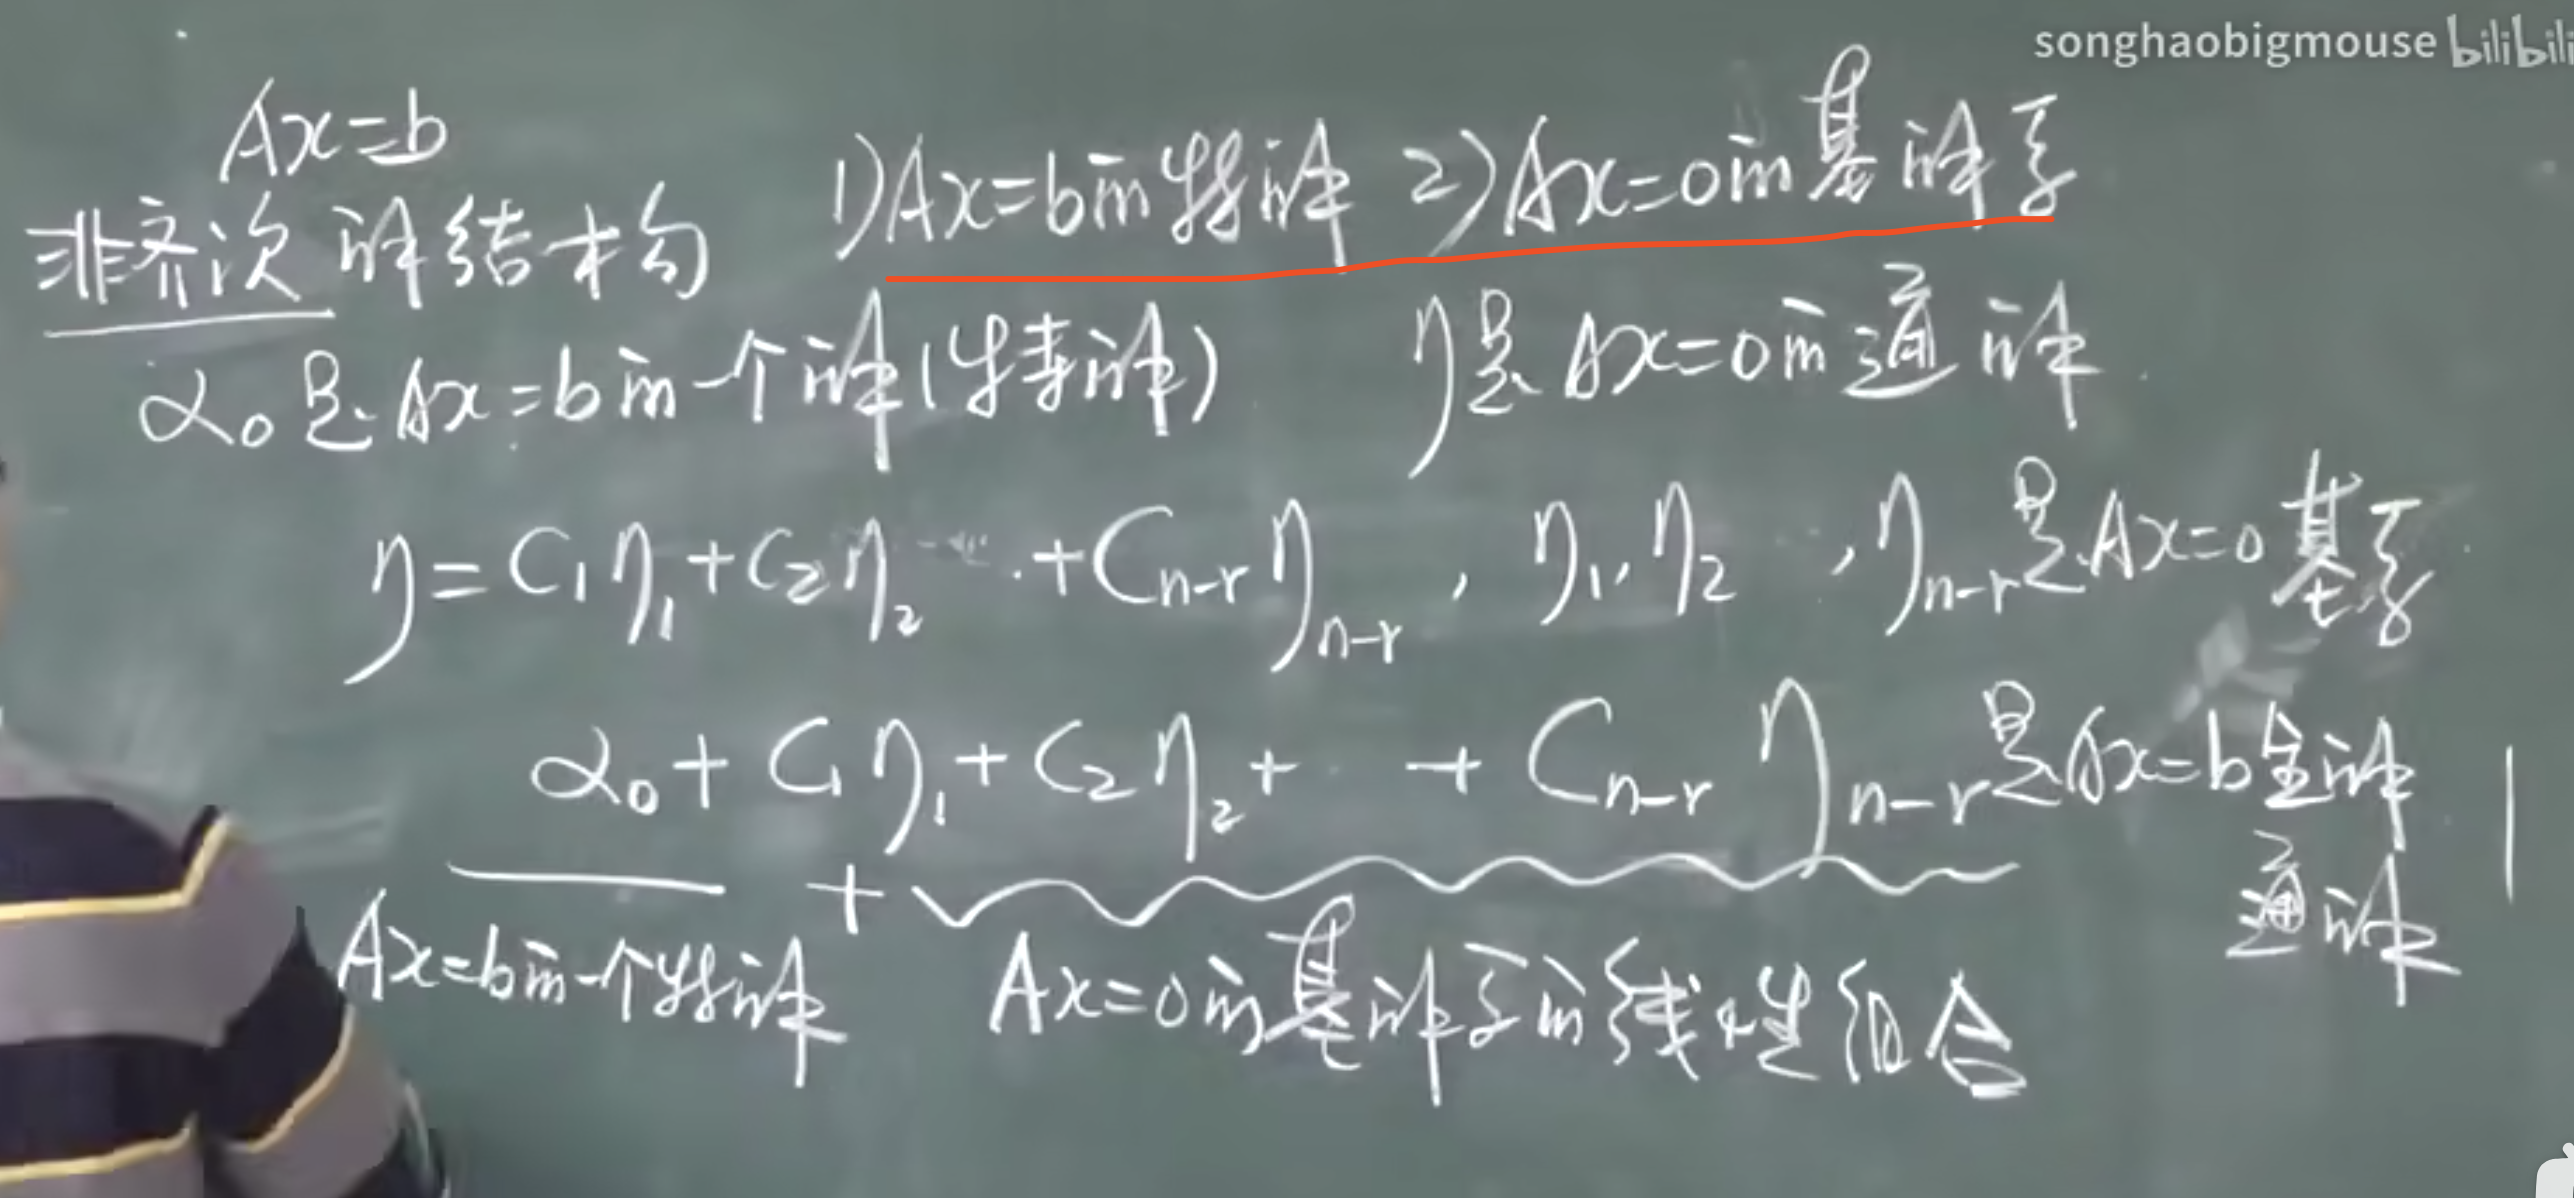 songhaobigmouse bilibili
Ax=b
非齐次解结构
1)Ax=b的特解 2)Ax=0的基础解系
α₀是Ax=b的一个解(特解) η是Ax=0的通解
η=C₁η₁+C₂η₂ ⋯ +Cₙ₋ᵣηₙ₋ᵣ, η₁,η₂ ,ηₙ₋ᵣ是Ax=0基系
α₀+C₁η₁+C₂η₂+ ⋯ +Cₙ₋ᵣηₙ₋ᵣ是Ax=b全部解
通解
+
Ax=b的一个特解 Ax=0的基解系的线性组合